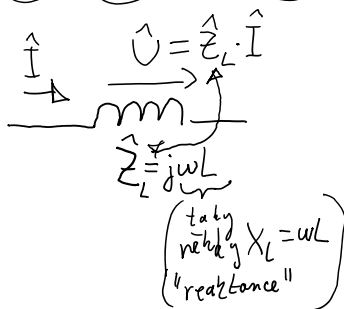 Î Û = Ẑ_L · Î
Ẑ_L = jωL
taky
někdy X_L = ωL
"reaktance"